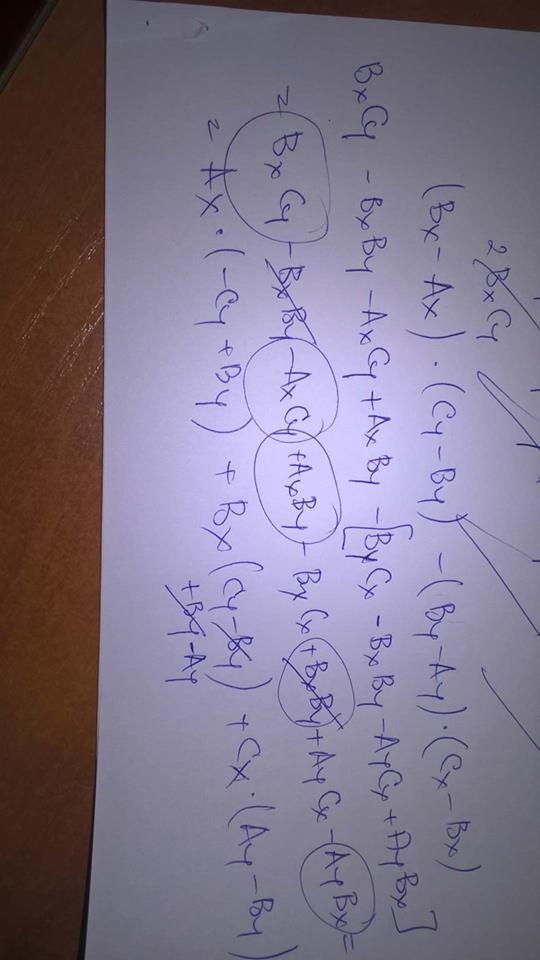 2BxCy
(Bx - Ax) · (Cy - By) - (By - Ay) · (Cx - Bx)
BxCy - BxBy - AxCy + AxBy - [ByCx - BxBy - AyCx + AyBx]
= BxCy - BxBy - AxCy + AxBy - ByCx + BxBy + AyCx - AyBx =
= Ax · (-Cy + By) + Bx (Cy - By) + Cx · (Ay - By)
+By - Ay